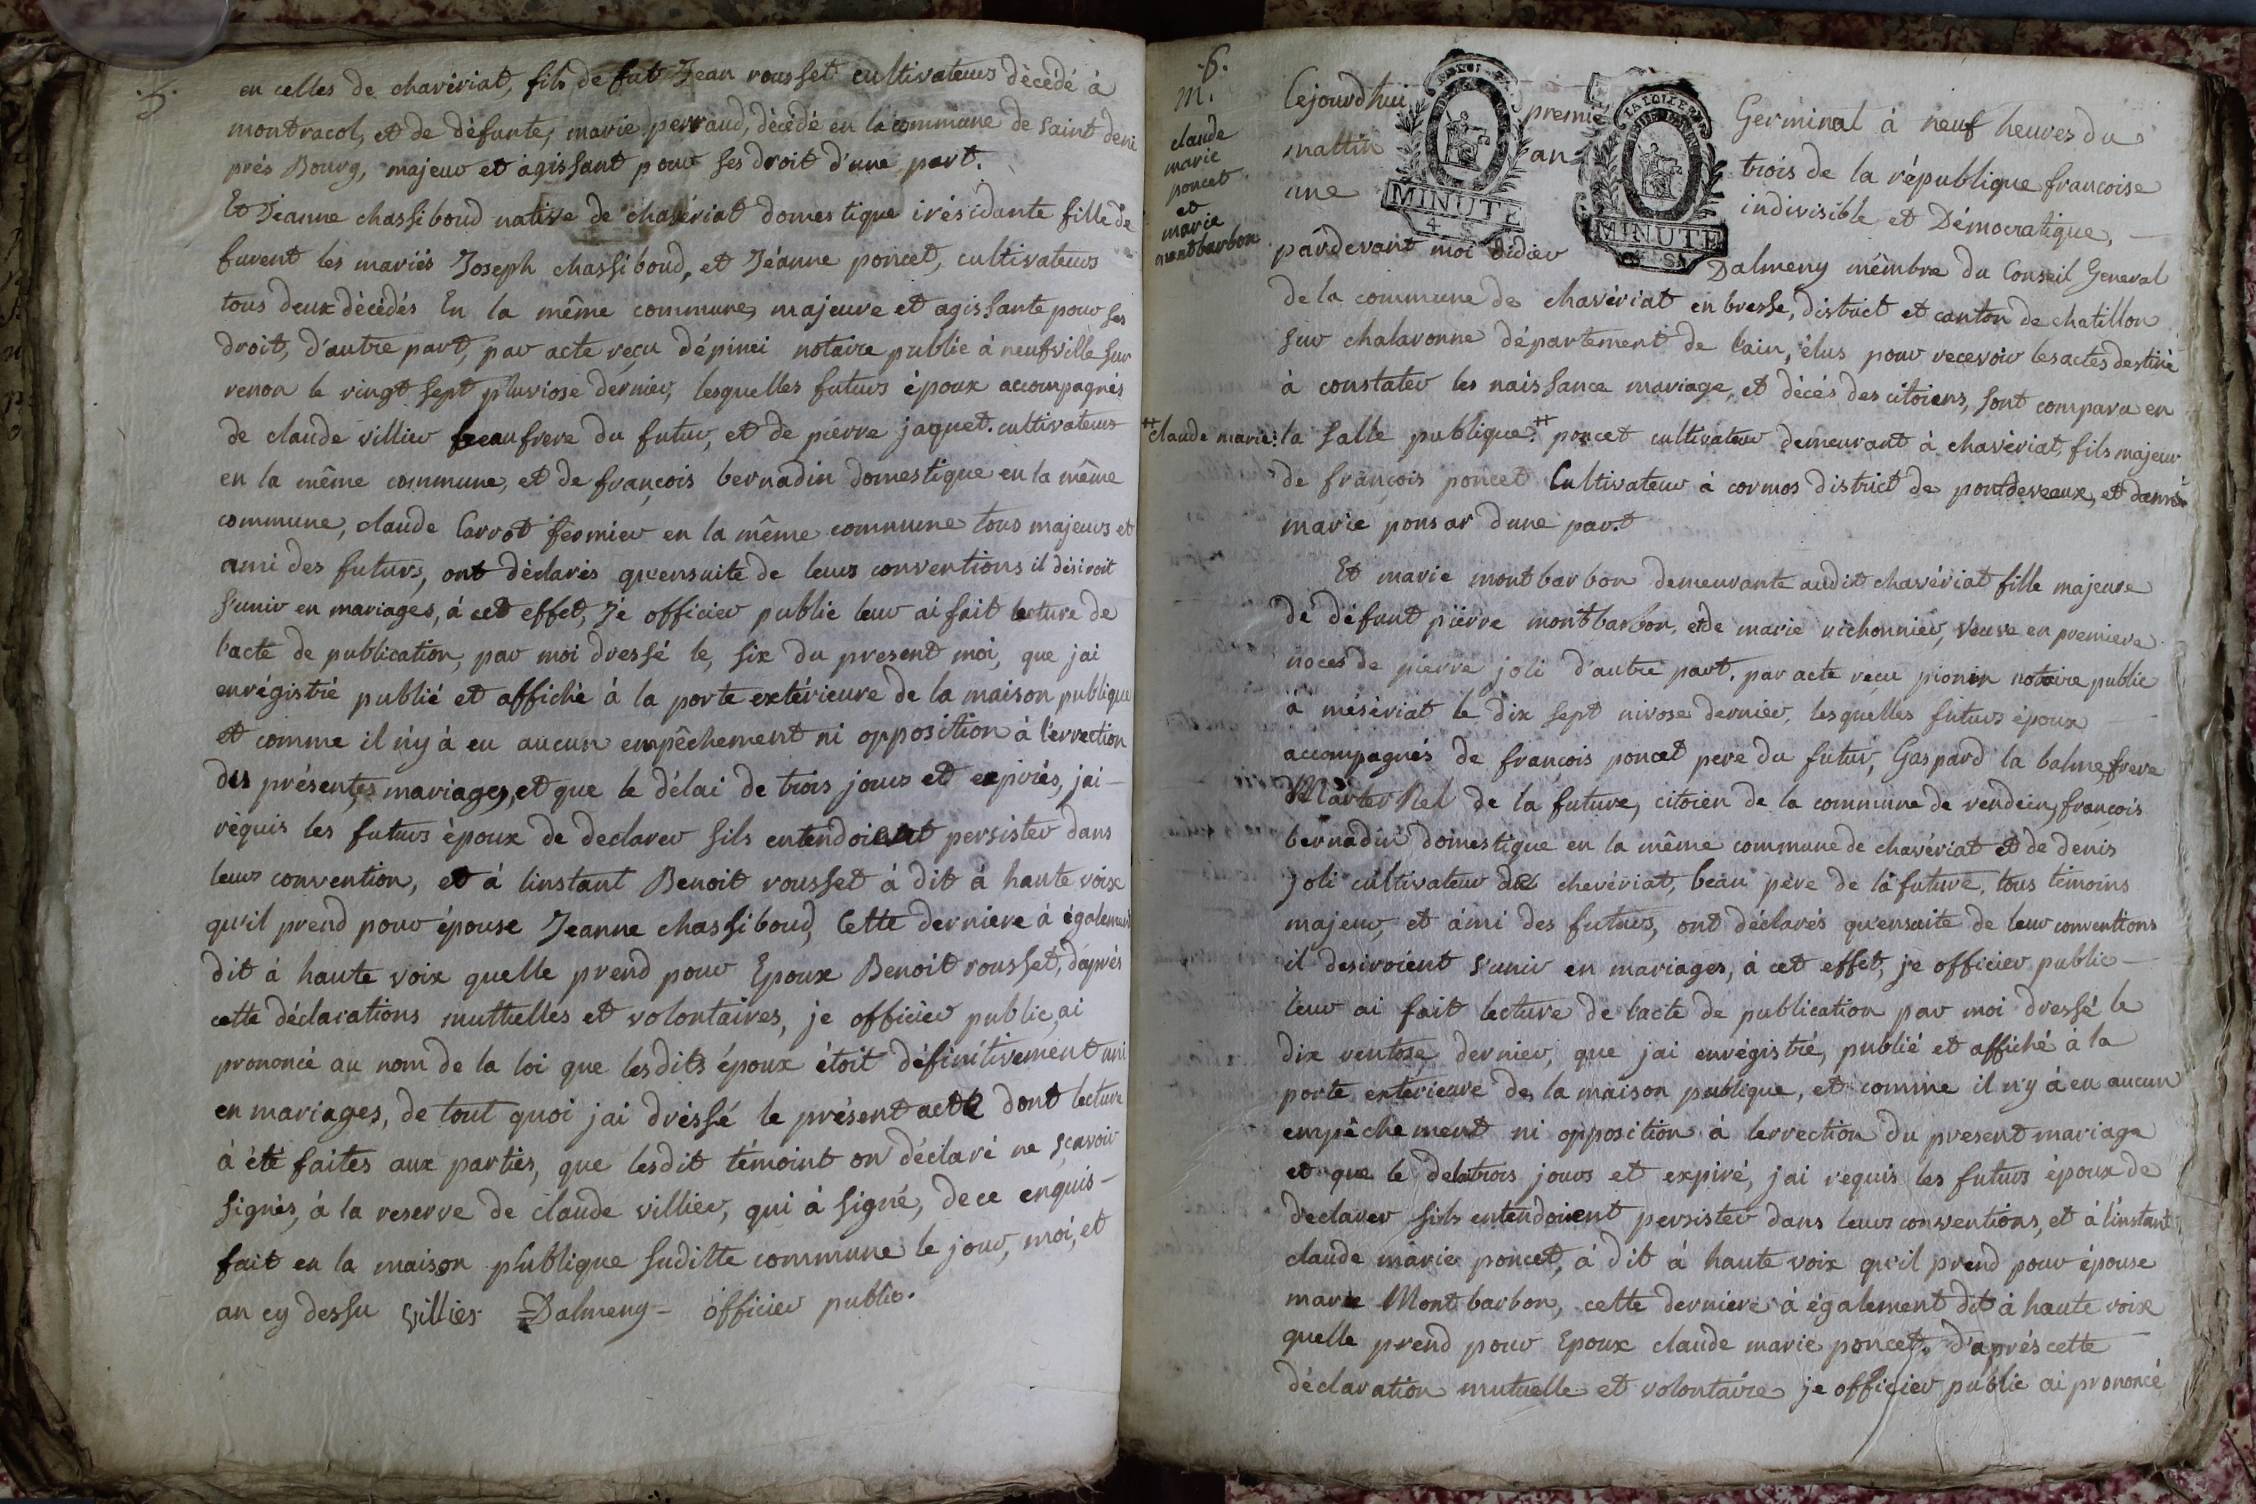 .5.
en celles de chavériat, fils de fut Jean rousset cultivateurs décédé à
montracol, et de défunte, marie perraud, décédé en la commune de saint deni
prés Bourg, majeur et agissant pour ses droit d'une part.
Et Jeanne chassiboud native de chavériat domestique irésidante fille de
furent les mariés Joseph chassiboud, et Jéanne poncet, cultivateurs
tous deux décédés En la même commune, majeure et agissante pour ses
droit, d'autre part, par acte reçu dépinei notaire public à neufville sur
renon le vingt sept pluviose dernier, lesquelles futurs époux accompagnés
de claude villier beaufrere du futur, et de piérre jaquet. cultivateurs
en la même commune, et de françois bernadin domestique en la même
commune, claude Carrot fermier en la même commune tous majeurs et
ami des futurs, ont déclarés qu'ensuite de leurs conventions il désiroit
s'unir en mariages, à cet effet, Je officier public leur ai fait lecture de
l'acte de publication, par moi dressé le, six du present moi, que jai
enrégistré publié et affiché à la porte extérieure de la maison publique
et comme il n'y à eu aucun empêchement ni opposition à l'errection
des présentes mariages, et que le délai de trois jours et expirés, jai
réquis les futurs époux de declarer sils entendoient persister dans
leurs convention, et à linstant Benoit rousset à dit à haute voix
qu'il prend pour épouse Jeanne chassiboud, Cette derniere à également
dit à haute voix quelle prend pour Epoux Benoit rousset, d'aprés
cette déclarations muttuelles et volontaires, je officier public, ai
prononcé au nom de la loi que lesdits époux étoit définitivement uni
en mariages, de tout quoi jai dréssé le présent acte dont lecture
à été faites aux partiés, que lesdit témoint on déclaré ne sçavoir
signés, à la reserve de claude villier, qui à signé, de ce enquis
fait en la maison publique suditte commune le jour, moi, et
an cy dessu villier Dalmeny officier public.
.6.
m.
claude
marie
poncet
et
marie
montbarbon
Cejourdhui premier Germinal à neuf heures du
mattin an trois de la république francoise
une indivisible et Démocratique,
MINUTE
MINUTE
pardevant moi didier Dalmeny mêmbre du Conseil General
de la commune de chavériat en bresse, district et canton de chatillon
sur chalaronne département de l'ain, élus pour recevoir les actes destiné
à constater les naissance mariage, et décés des citoiens, sont comparu en
++claude marie: la salle publique.++ poncet cultivateur demeurant à chavériat, fils majeur
de françois poncet Cultivateur à cormos district de pontdeveaux, et danné
marie ponsar dune part
Et marie montbarbon demeurante audit chavériat fille majeure
de défunt piérre montbarbon, et de marie richonnier, veuve en premiere
noces de pierre joli d'autre part. par acte reçu pionin notaire public
à mésériat le dix sept nivose dernier, lesquelles futurs époux
accompagnés de françois poncet pere du futur, Gaspard la balme frere
Marternel de la future, citoien de la commune de vendein, françois
bernadin domestique en la même commune de chavériat et de denis
joli cultivateur de chevériat, beau pére de la future, tous témoins
majeur, et ami des futurs, ont déclarés qu'ensuite de leur conventions
il desiroient s'unir en mariages, à cet effet, je officier public
leur ai fait lecture de l'acte de publication par moi dressé le
dix ventose, dernier, que jai enrégistré, publié et affiché à la
porte exterieure de la maison publique, et comme il n'y à eu aucun
empêchement ni opposition à lerrection du present mariage
et que le delatrois jours et expiré, jai réquis les futurs époux de
declarer sils entendoient persister dans leurs conventions, et à l'instant
claude marie poncet, à dit à haute voix qu'il prend pour épouse
marie Montbarbon, cette derniere à également dit à haute voix
quelle prend pour Epoux claude marie poncet, d'aprés cette
déclaration mutuelle et volontaire je officier public ai prononcé